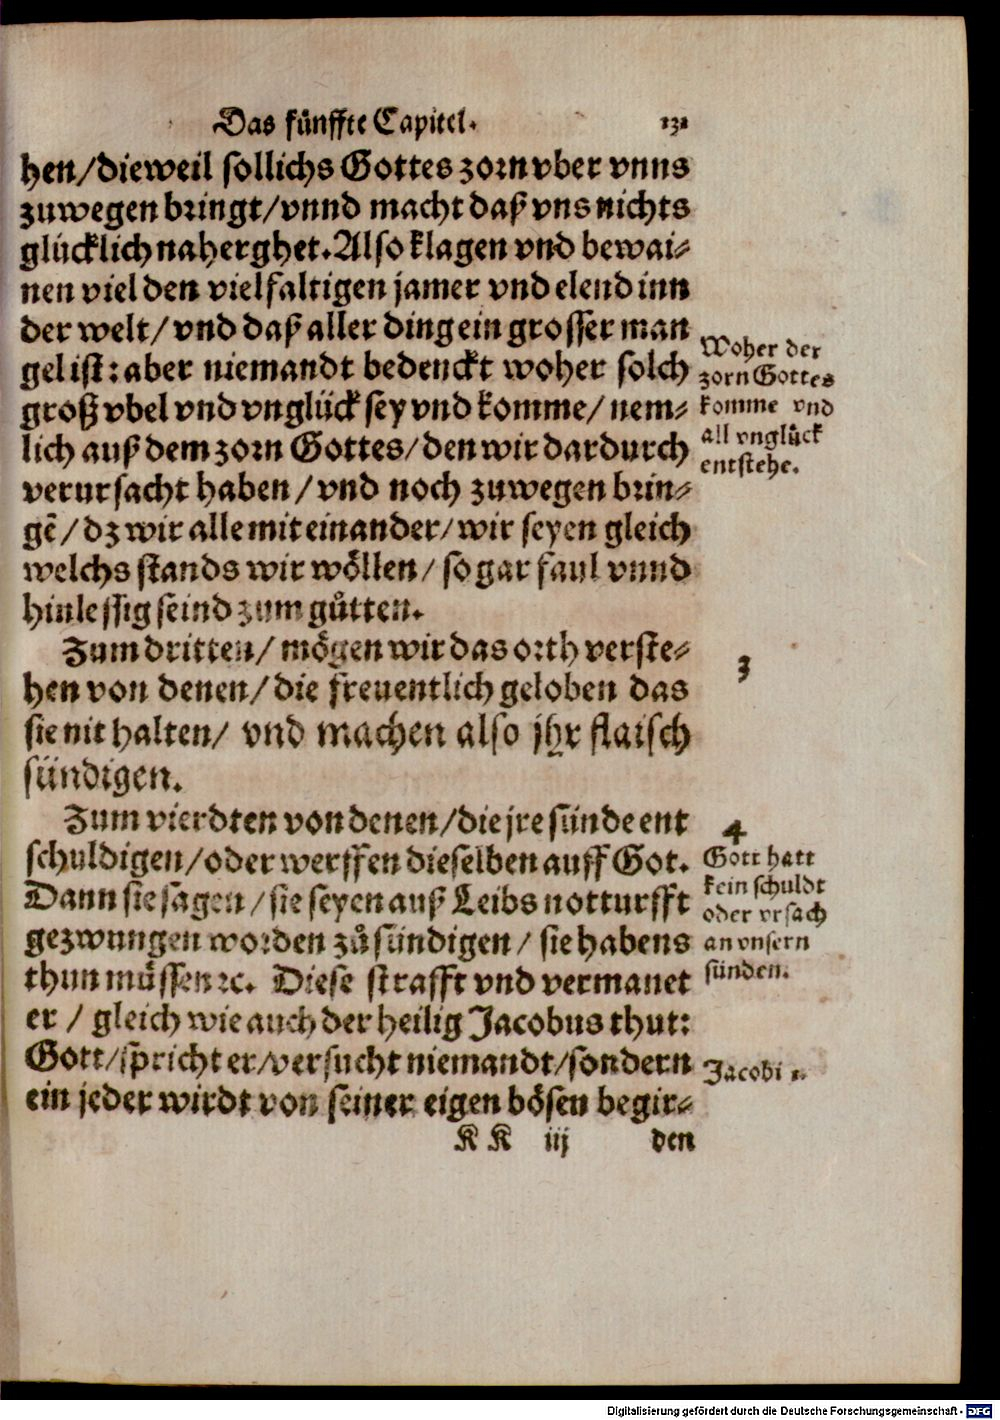 Das fünffte Capitel. 131
hen/dieweil sollichs Gottes zorn vber vnns
zuwegen bringt/vnnd macht daß vns nichts
glücklich naherghet. Also klagen vnd bewai-
nen viel den vielfaltigen jamer vnd elend inn
der welt/vnd daß aller ding ein grosser man
gel ist: aber niemandt bedenckt woher solch
groß vbel vnd vnglück sey vnd komme/nem-
lich auß dem zorn Gottes/den wir dardurch
verursacht haben/vnd noch zuwegen brin-
gẽ/dz wir alle mit einander/wir seyen gleich
welchs stands wir wöllen/so gar faul vnnd
hinlessig seind zum gůtten.
Woher der
zorn Gottes
komme vnd
all vnglück
entstehe.
Zum dritten/mögen wir das orth verste-
hen von denen/die freuentlich geloben das
sie nit halten/vnd machen also jhr flaisch
sündigen.
3
Zum vierdten von denen/die jre sünde ent
schuldigen/oder werffen dieselben auff Got.
Dann sie sagen/sie seyen auß Leibs notturfft
gezwungen worden zů sündigen/sie habens
thun müssen ꝛc. Diese strafft vnd vermanet
er/gleich wie auch der heilig Jacobus thut:
Gott/spricht er/versucht niemandt/sondern
ein jeder wirdt von seiner eigen bösen begir-
4
Gott hatt
kein schuldt
oder vrsach
an vnsern
sünden.
Jacobi 1.
KK iij den
Digitalisierung gefördert durch die Deutsche Forschungsgemeinschaft - DFG